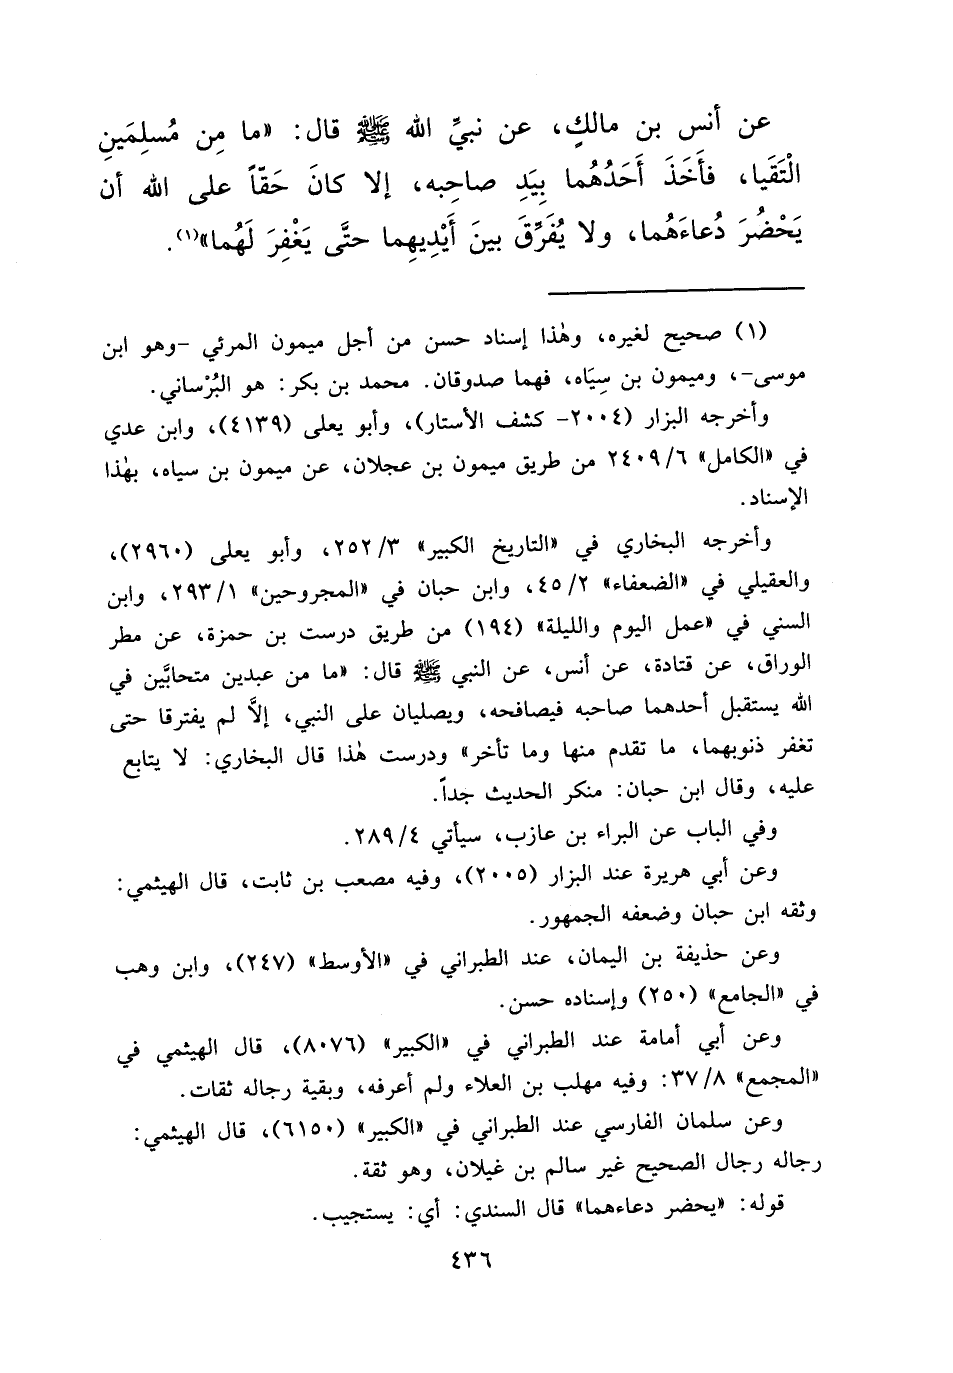 عن أنس بن مالكٍ، عن نبيِّ الله ﷺ قال: «ما مِن مُسلِمَينِ
الْتَقَيا، فأَخَذَ أَحَدُهُما بِيَدِ صاحِبه، إلا كانَ حَقّاً على الله أن
يَحْضُرَ دُعاءَهُما، ولا يُفَرِّقَ بينَ أَيْدِيهِما حتَّى يَغْفِرَ لَهُما»(١).
(١) صحيح لغيره، وهٰذا إسناد حسن من أجل ميمون المرئي -وهو ابن
موسى-، وميمون بن سِيَاه، فهما صدوقان. محمد بن بكر: هو البُرْساني.
وأخرجه البزار (٢٠٠٤- كشف الأستار)، وأبو يعلى (٤١٣٩)، وابن عدي
في «الكامل» ٢٤٠٩/٦ من طريق ميمون بن عجلان، عن ميمون بن سياه، بهٰذا
الإسناد.
وأخرجه البخاري في «التاريخ الكبير» ٢٥٢/٣، وأبو يعلى (٢٩٦٠)،
والعقيلي في «الضعفاء» ٤٥/٢، وابن حبان في «المجروحين» ٢٩٣/١، وابن
السني في «عمل اليوم والليلة» (١٩٤) من طريق درست بن حمزة، عن مطر
الوراق، عن قتادة، عن أنس، عن النبي ﷺ قال: «ما من عبدين متحابَّين في
الله يستقبل أحدهما صاحبه فيصافحه، ويصليان على النبي، إلاَّ لم يفترقا حتى
تغفر ذنوبهما، ما تقدم منها وما تأخر» ودرست هٰذا قال البخاري: لا يتابع
عليه، وقال ابن حبان: منكر الحديث جداً.
وفي الباب عن البراء بن عازب، سيأتي ٢٨٩/٤.
وعن أبي هريرة عند البزار (٢٠٠٥)، وفيه مصعب بن ثابت، قال الهيثمي:
وثقه ابن حبان وضعفه الجمهور.
وعن حذيفة بن اليمان، عند الطبراني في «الأوسط» (٢٤٧)، وابن وهب
في «الجامع» (٢٥٠) وإسناده حسن.
وعن أبي أمامة عند الطبراني في «الكبير» (٨٠٧٦)، قال الهيثمي في
«المجمع» ٣٧/٨: وفيه مهلب بن العلاء ولم أعرفه، وبقية رجاله ثقات.
وعن سلمان الفارسي عند الطبراني في «الكبير» (٦١٥٠)، قال الهيثمي:
رجاله رجال الصحيح غير سالم بن غيلان، وهو ثقة.
قوله: «يحضر دعاءهما» قال السندي: أي: يستجيب.
٤٣٦